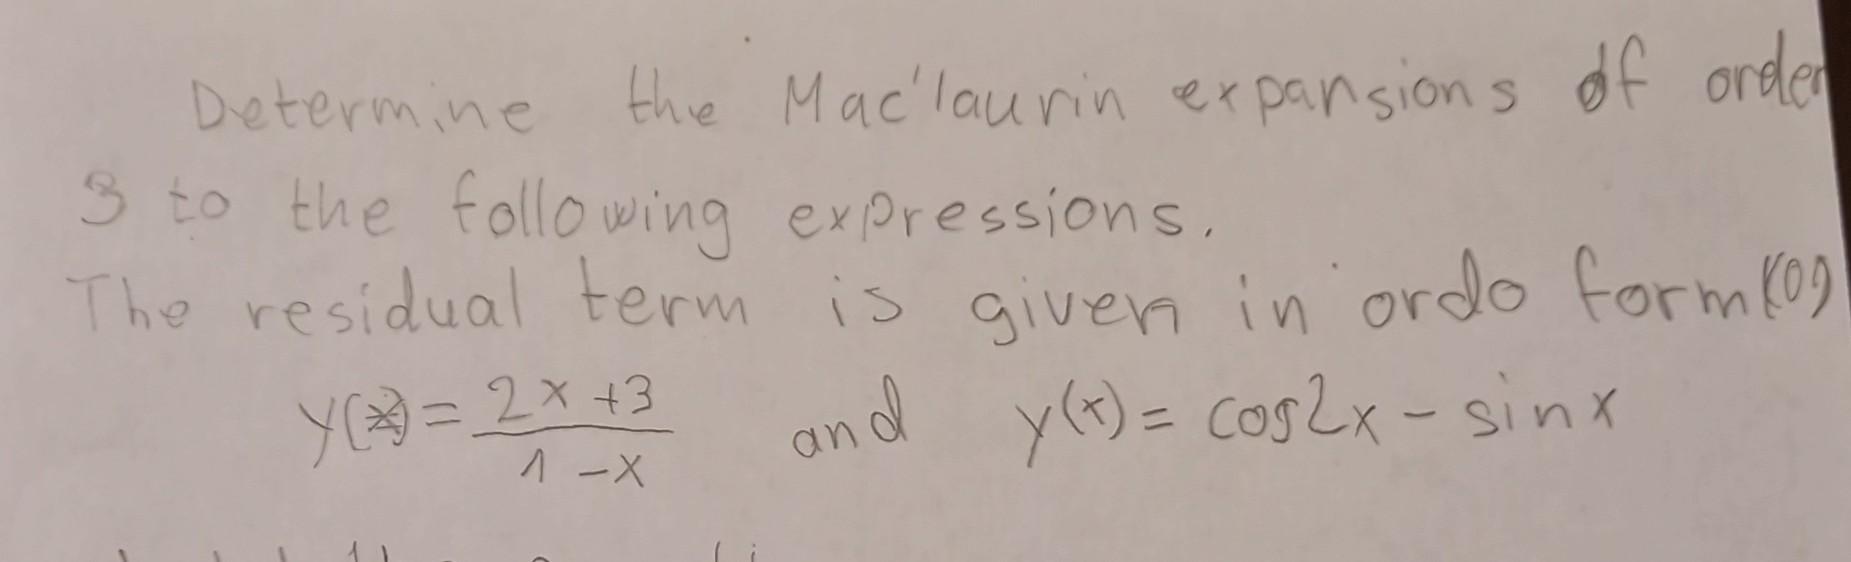 Determine the Mac'laurin expansions of order
3 to the following expressions.
The residual term is given in ordo form (O)
y(x) = 2x+3 / 1-x and y(x) = cos2x - sinx